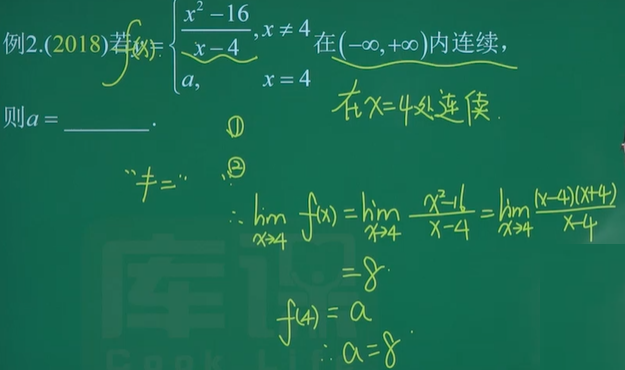 例2.(2018)若f(x)={ (x²-16)/(x-4), x≠4
a, x=4 在(-∞,+∞)内连续,
则a=______.
在x=4处连续.
①
②
"≠="
∴ lim x→4 f(x) = lim x→4 (x²-16)/(x-4) = lim x→4 (x-4)(x+4)/(x-4)
=8.
f(4)=a
∴ a=8.
库课
Cook Li